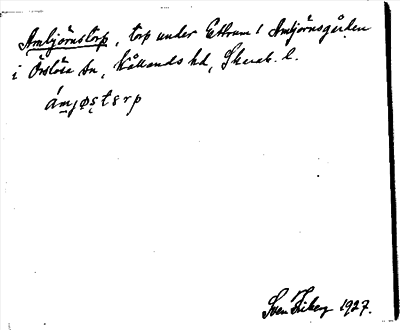 Ambjörnstorp, torp under Ettrum 1 Ambjörnsgården
i Örslösa sn, Kållands hd, Skarab. l.
ámjøs̨tərp
Sven Friberg 1927.